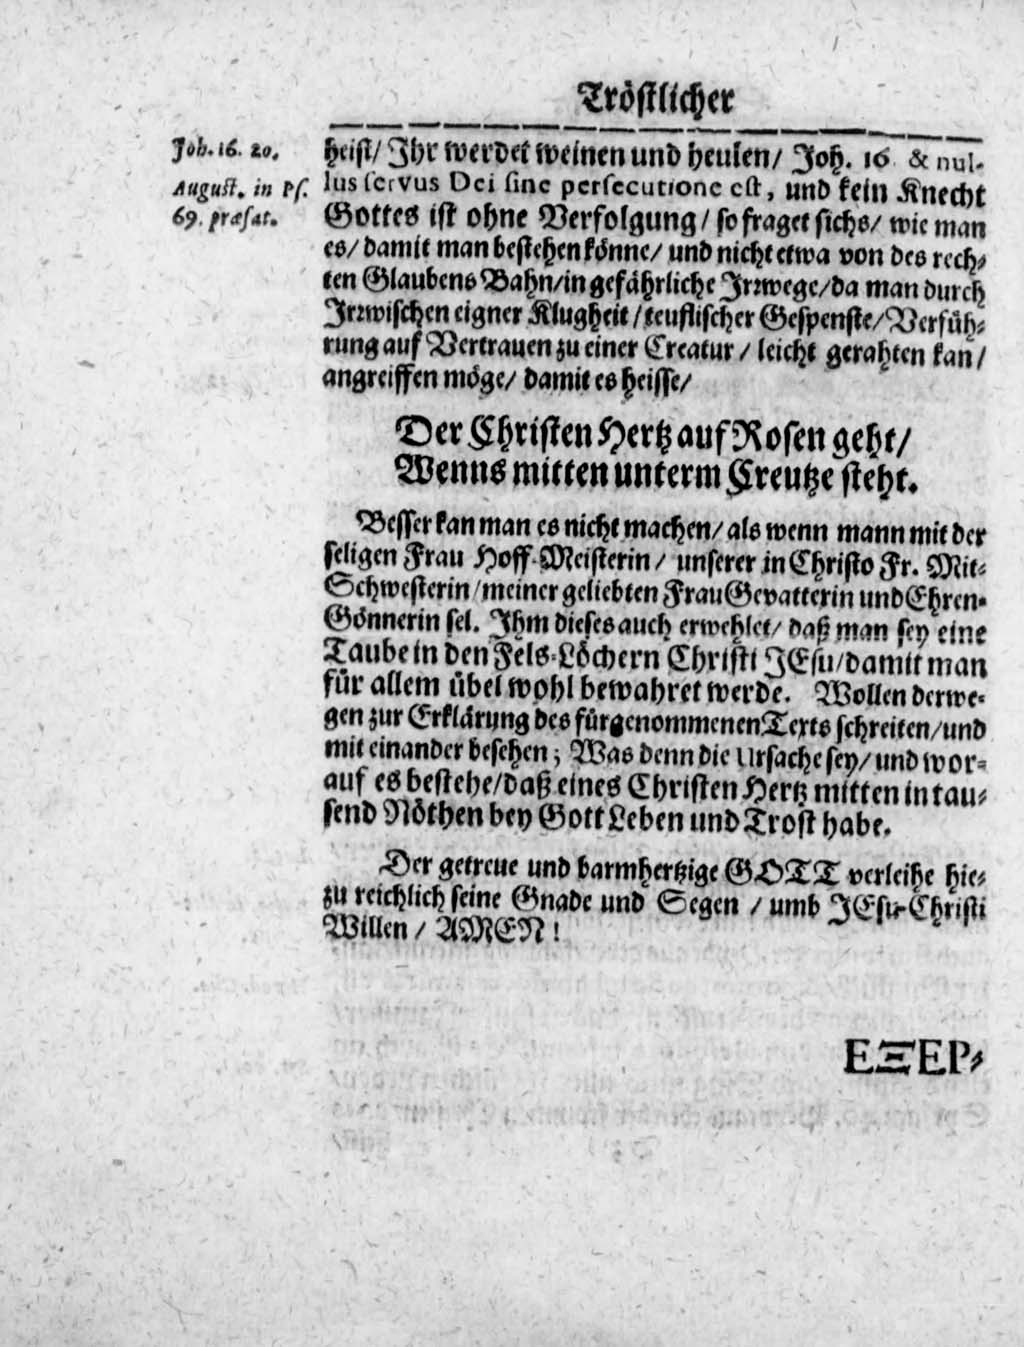 Tröstlicher
Joh. 16. 20.
August. in Ps.
69. præfat.
heist/ Ihr werdet weinen und heulen/ Joh. 16 & nul-
lus servus Dei sine persecutione est, und kein Knecht
Gottes ist ohne Verfolgung/ so fraget sichs/ wie man
es/ damit man bestehen könne/ und nicht etwa von des rech-
ten Glaubens Bahn/ in gefährliche Irrwege/ da man durch
Irrwischen eigner Klugheit/ teuflischer Gespenste/ Verfüh-
rung auf Vertrauen zu einer Creatur/ leicht gerahten kan/
angreiffen möge/ damit es heisse/
Der Christen Hertz auf Rosen geht/
Wenns mitten unterm Creutze steht.
Besser kan man es nicht machen/ als wenn mann mit der
seligen Frau Hoff-Meisterin/ unserer in Christo Fr. Mit-
Schwesterin/ meiner geliebten Frau Gevatterin und Ehren-
Gönnerin sel. Ihm dieses auch erwehlet/ daß man sey eine
Taube in den Fels-Löchern Christi JEsu/ damit man
für allem übel wohl bewahret werde. Wollen derwe-
gen zur Erklärung des fürgenommenen Texts schreiten/ und
mit einander besehen; Was denn die Ursache sey/ und wor-
auf es bestehe/ daß eines Christen Hertz mitten in tau-
send Nöthen bey Gott Leben und Trost habe.
Der getreue und barmhertzige GOTT verleihe hie-
zu reichlich seine Gnade und Segen / umb JEsu-Christi
Willen / AMEN!
EΞEP-